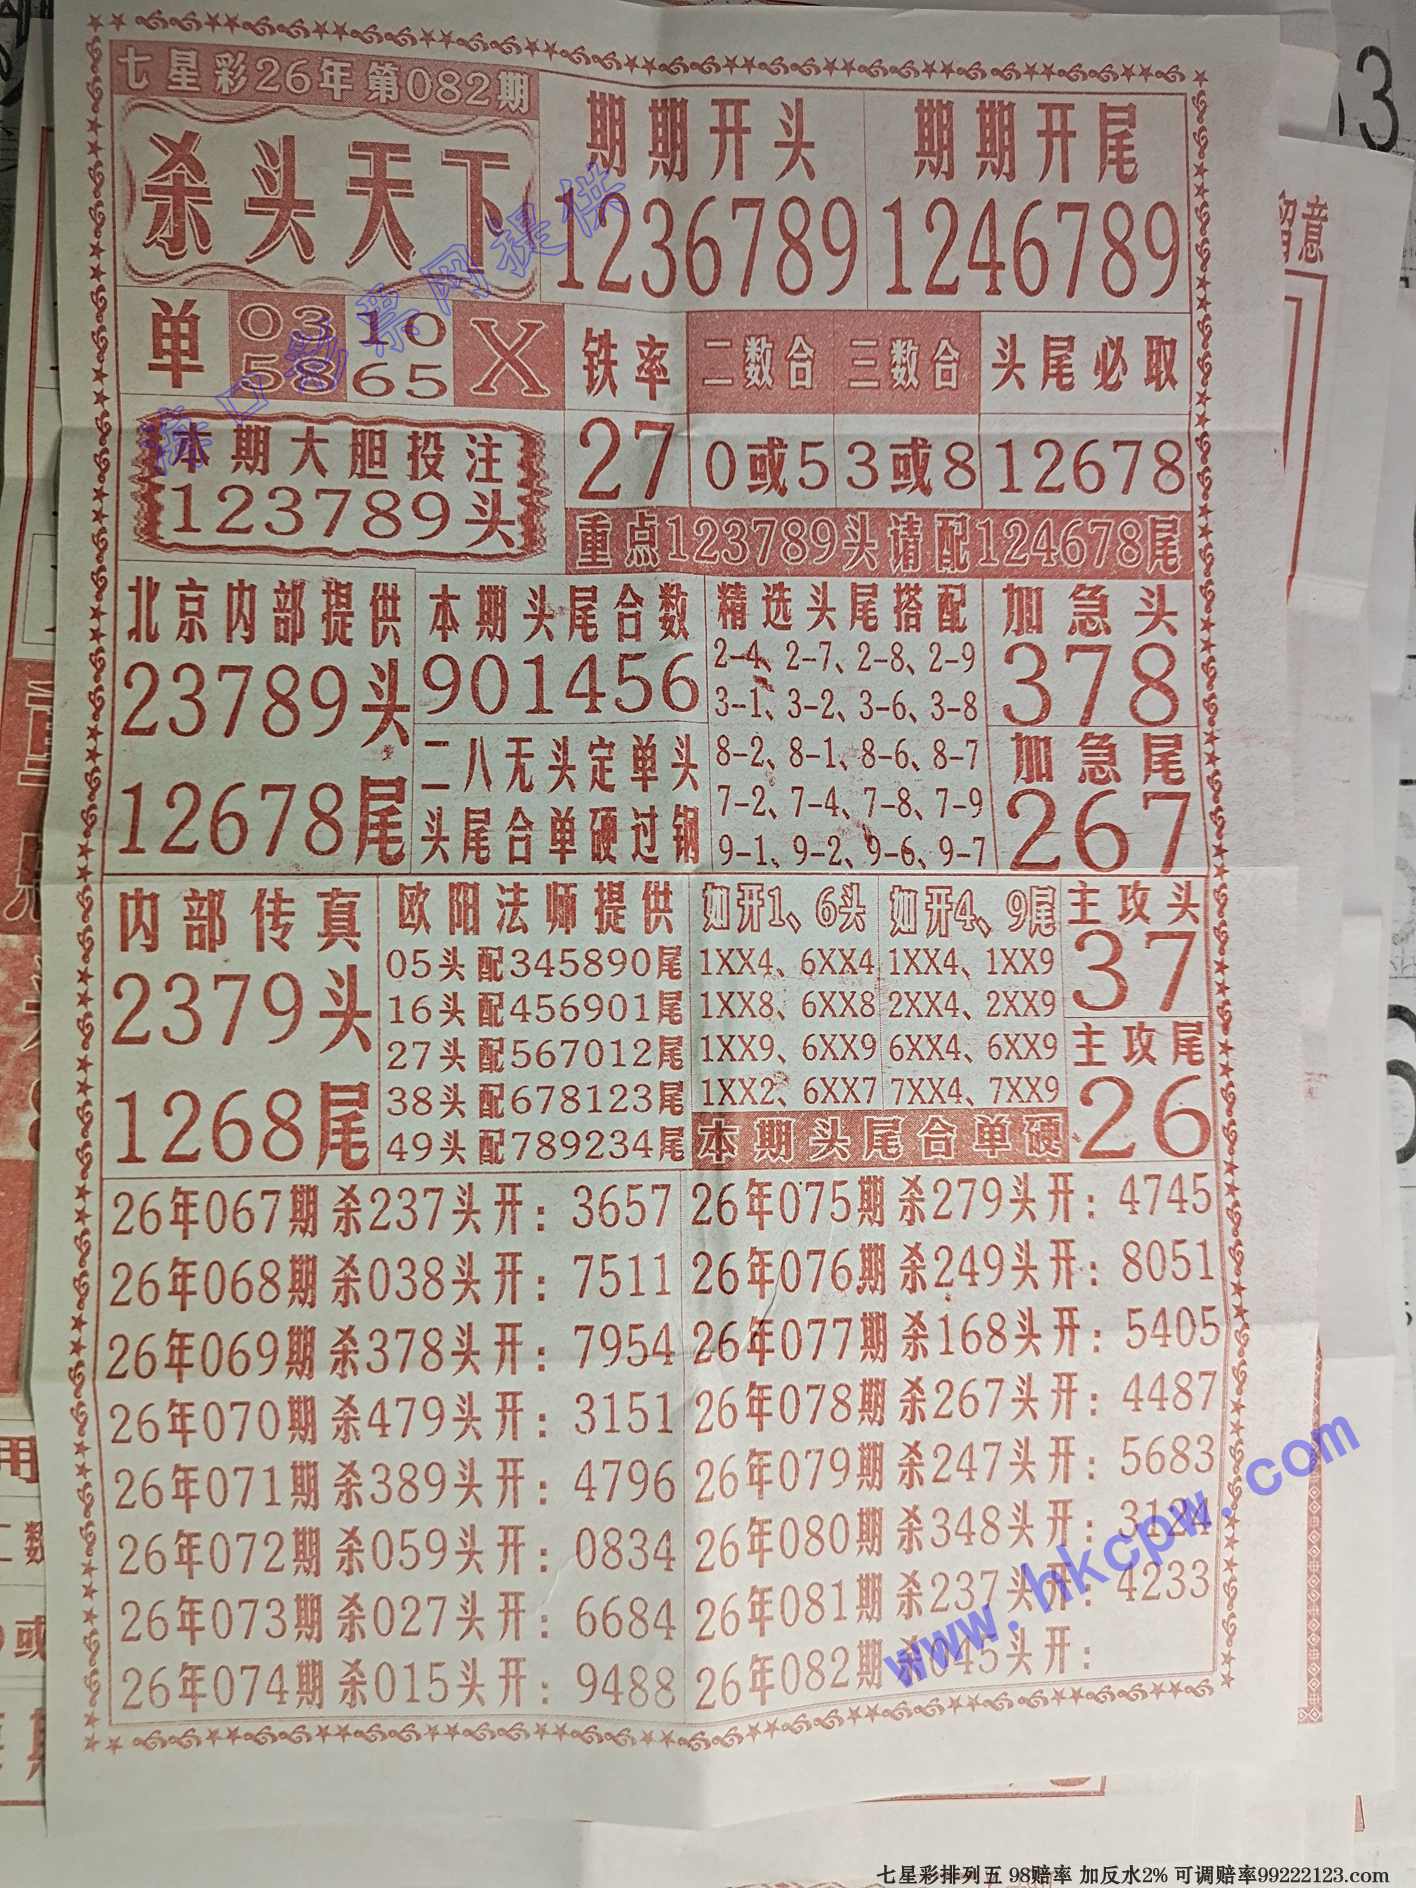 七星彩26年第082期
杀头天下
期期开头
1236789
期期开尾
1246789
单
03
58
10
65
X
铁率
27
二数合
0或5
三数合
3或8
头尾必取
12678
本期大胆投注
123789头
重点123789头请配124678尾
北京内部提供
23789头
12678尾
本期头尾合数
901456
二八无头定单头
头尾合单硬过钢
精选头尾搭配
2-4、2-7、2-8、2-9
3-1、3-2、3-6、3-8
8-2、8-1、8-6、8-7
7-2、7-4、7-8、7-9
9-1、9-2、9-6、9-7
加急头
378
加急尾
267
内部传真
2379头
1268尾
欧阳法师提供
05头配345890尾
16头配456901尾
27头配567012尾
38头配678123尾
49头配789234尾
如开1、6头
1XX4、6XX4
1XX8、6XX8
1XX9、6XX9
1XX2、6XX7
如开4、9尾
1XX4、1XX9
2XX4、2XX9
6XX4、6XX9
7XX4、7XX9
本期头尾合单硬
主攻头
37
主攻尾
26
26年067期杀237头开：3657
26年068期杀038头开：7511
26年069期杀378头开：7954
26年070期杀479头开：3151
26年071期杀389头开：4796
26年072期杀059头开：0834
26年073期杀027头开：6684
26年074期杀015头开：9488
26年075期杀279头开：4745
26年076期杀249头开：8051
26年077期杀168头开：5405
26年078期杀267头开：4487
26年079期杀247头开：5683
26年080期杀348头开：3124
26年081期杀237头开：4233
26年082期杀045头开：
海口彩票网提供
www.hkcpw.com
留意
七星彩排列五 98赔率 加反水2% 可调赔率99222123.com